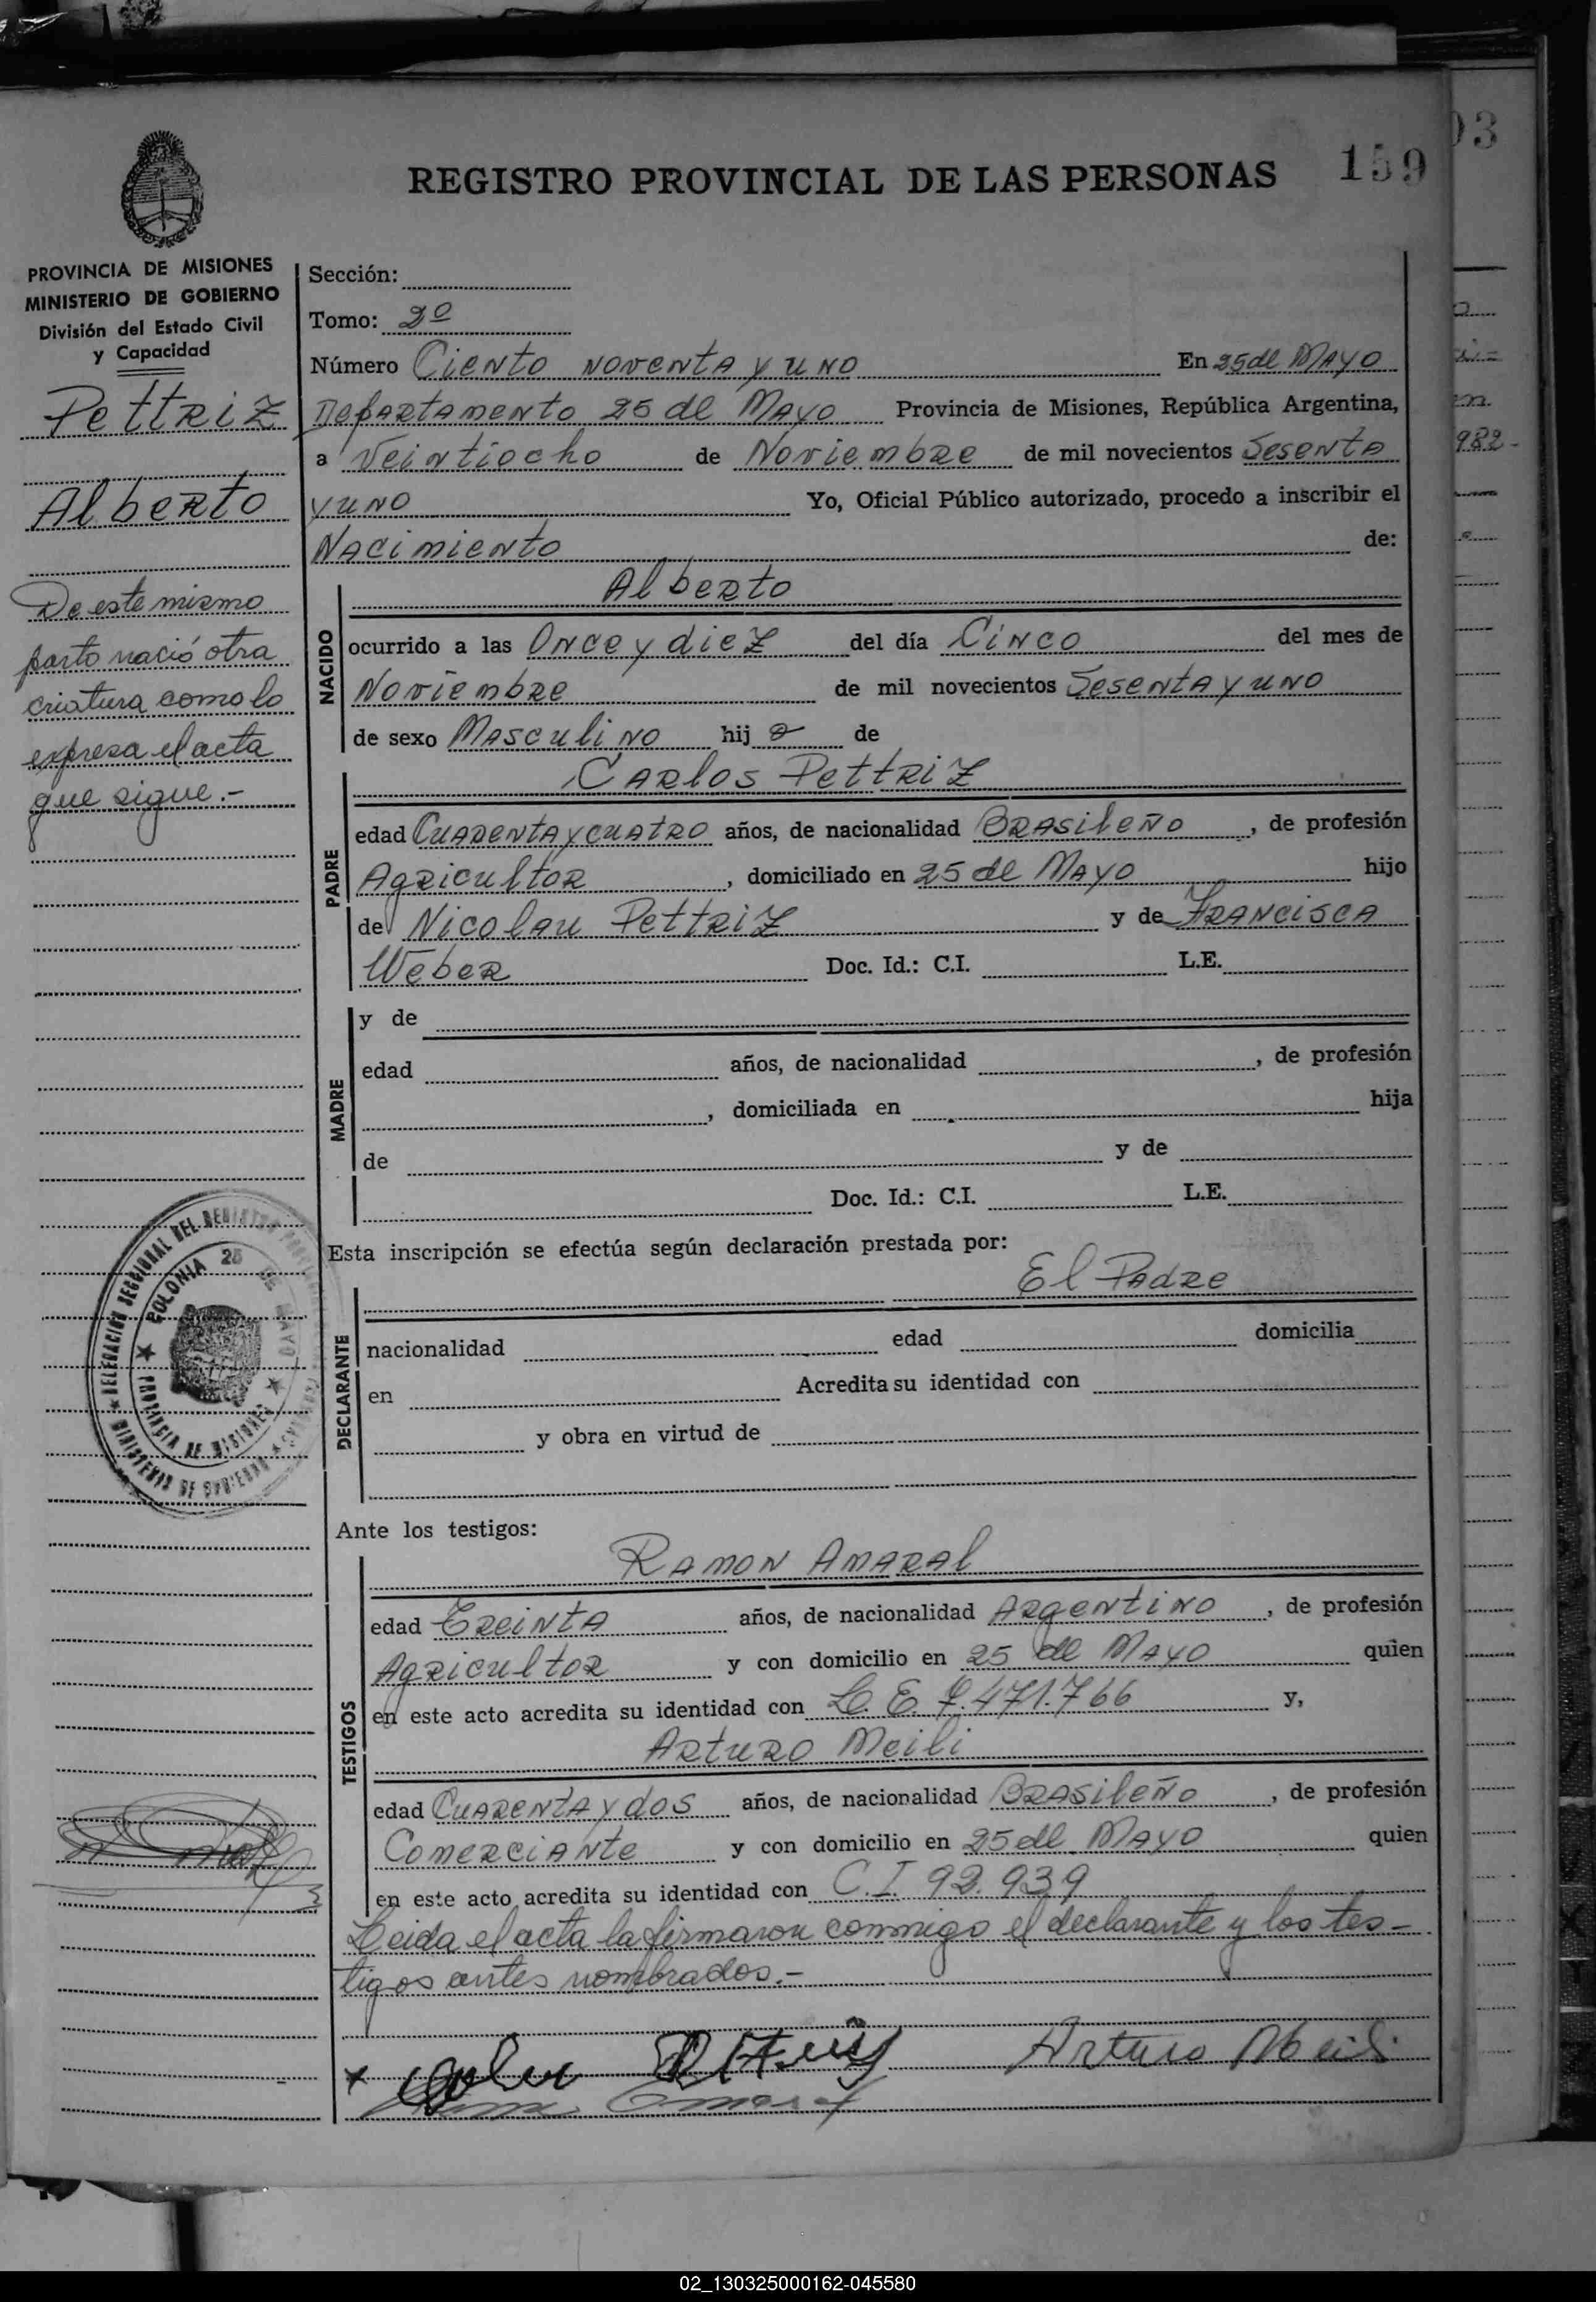 REGISTRO PROVINCIAL DE LAS PERSONAS 159
93
PROVINCIA DE MISIONES
MINISTERIO DE GOBIERNO
División del Estado Civil
y Capacidad
Pettriz
Alberto
De este mismo
parto nació otra
criatura como lo
expresa el acta
que sigue.-
Sección:
Tomo: 2º
Número Ciento noventa y uno En 25 de Mayo
Departamento 25 de Mayo Provincia de Misiones, República Argentina,
a Veintiocho de Noviembre de mil novecientos Sesenta
y uno Yo, Oficial Público autorizado, procedo a inscribir el
Nacimiento de:
NACIDO
Alberto
ocurrido a las Once y diez del día Cinco del mes de
Noviembre de mil novecientos Sesenta y uno
de sexo Masculino hij o de
PADRE
Carlos Pettriz
edad Cuarenta y cuatro años, de nacionalidad Brasileño, de profesión
Agricultor, domiciliado en 25 de Mayo hijo
de Nicolau Pettriz y de Francisca
Weber Doc. Id.: C.I. L.E.
MADRE
y de
edad años, de nacionalidad , de profesión
, domiciliada en hija
de y de
Doc. Id.: C.I. L.E.
Esta inscripción se efectúa según declaración prestada por:
El Padre
DECLARANTE
nacionalidad edad domicilia
en Acredita su identidad con
y obra en virtud de
DELEGACION SECCIONAL DEL REGISTRO
COLONIA 25 DE MAYO
PROVINCIA DE MISIONES
MINISTERIO DE GOBIERNO
Ante los testigos:
TESTIGOS
Ramon Amaral
edad Treinta años, de nacionalidad Argentino, de profesión
Agricultor y con domicilio en 25 de Mayo quien
en este acto acredita su identidad con L.E. 7.471.766 y,
Arturo Meili
edad Cuarenta y dos años, de nacionalidad Brasileño, de profesión
Comerciante y con domicilio en 25 de Mayo quien
en este acto acredita su identidad con C.I. 92.939
Leida el acta la firmaron conmigo el declarante y los tes-
tigos antes nombrados.-
Arturo Meili
982-
02_130325000162-045580